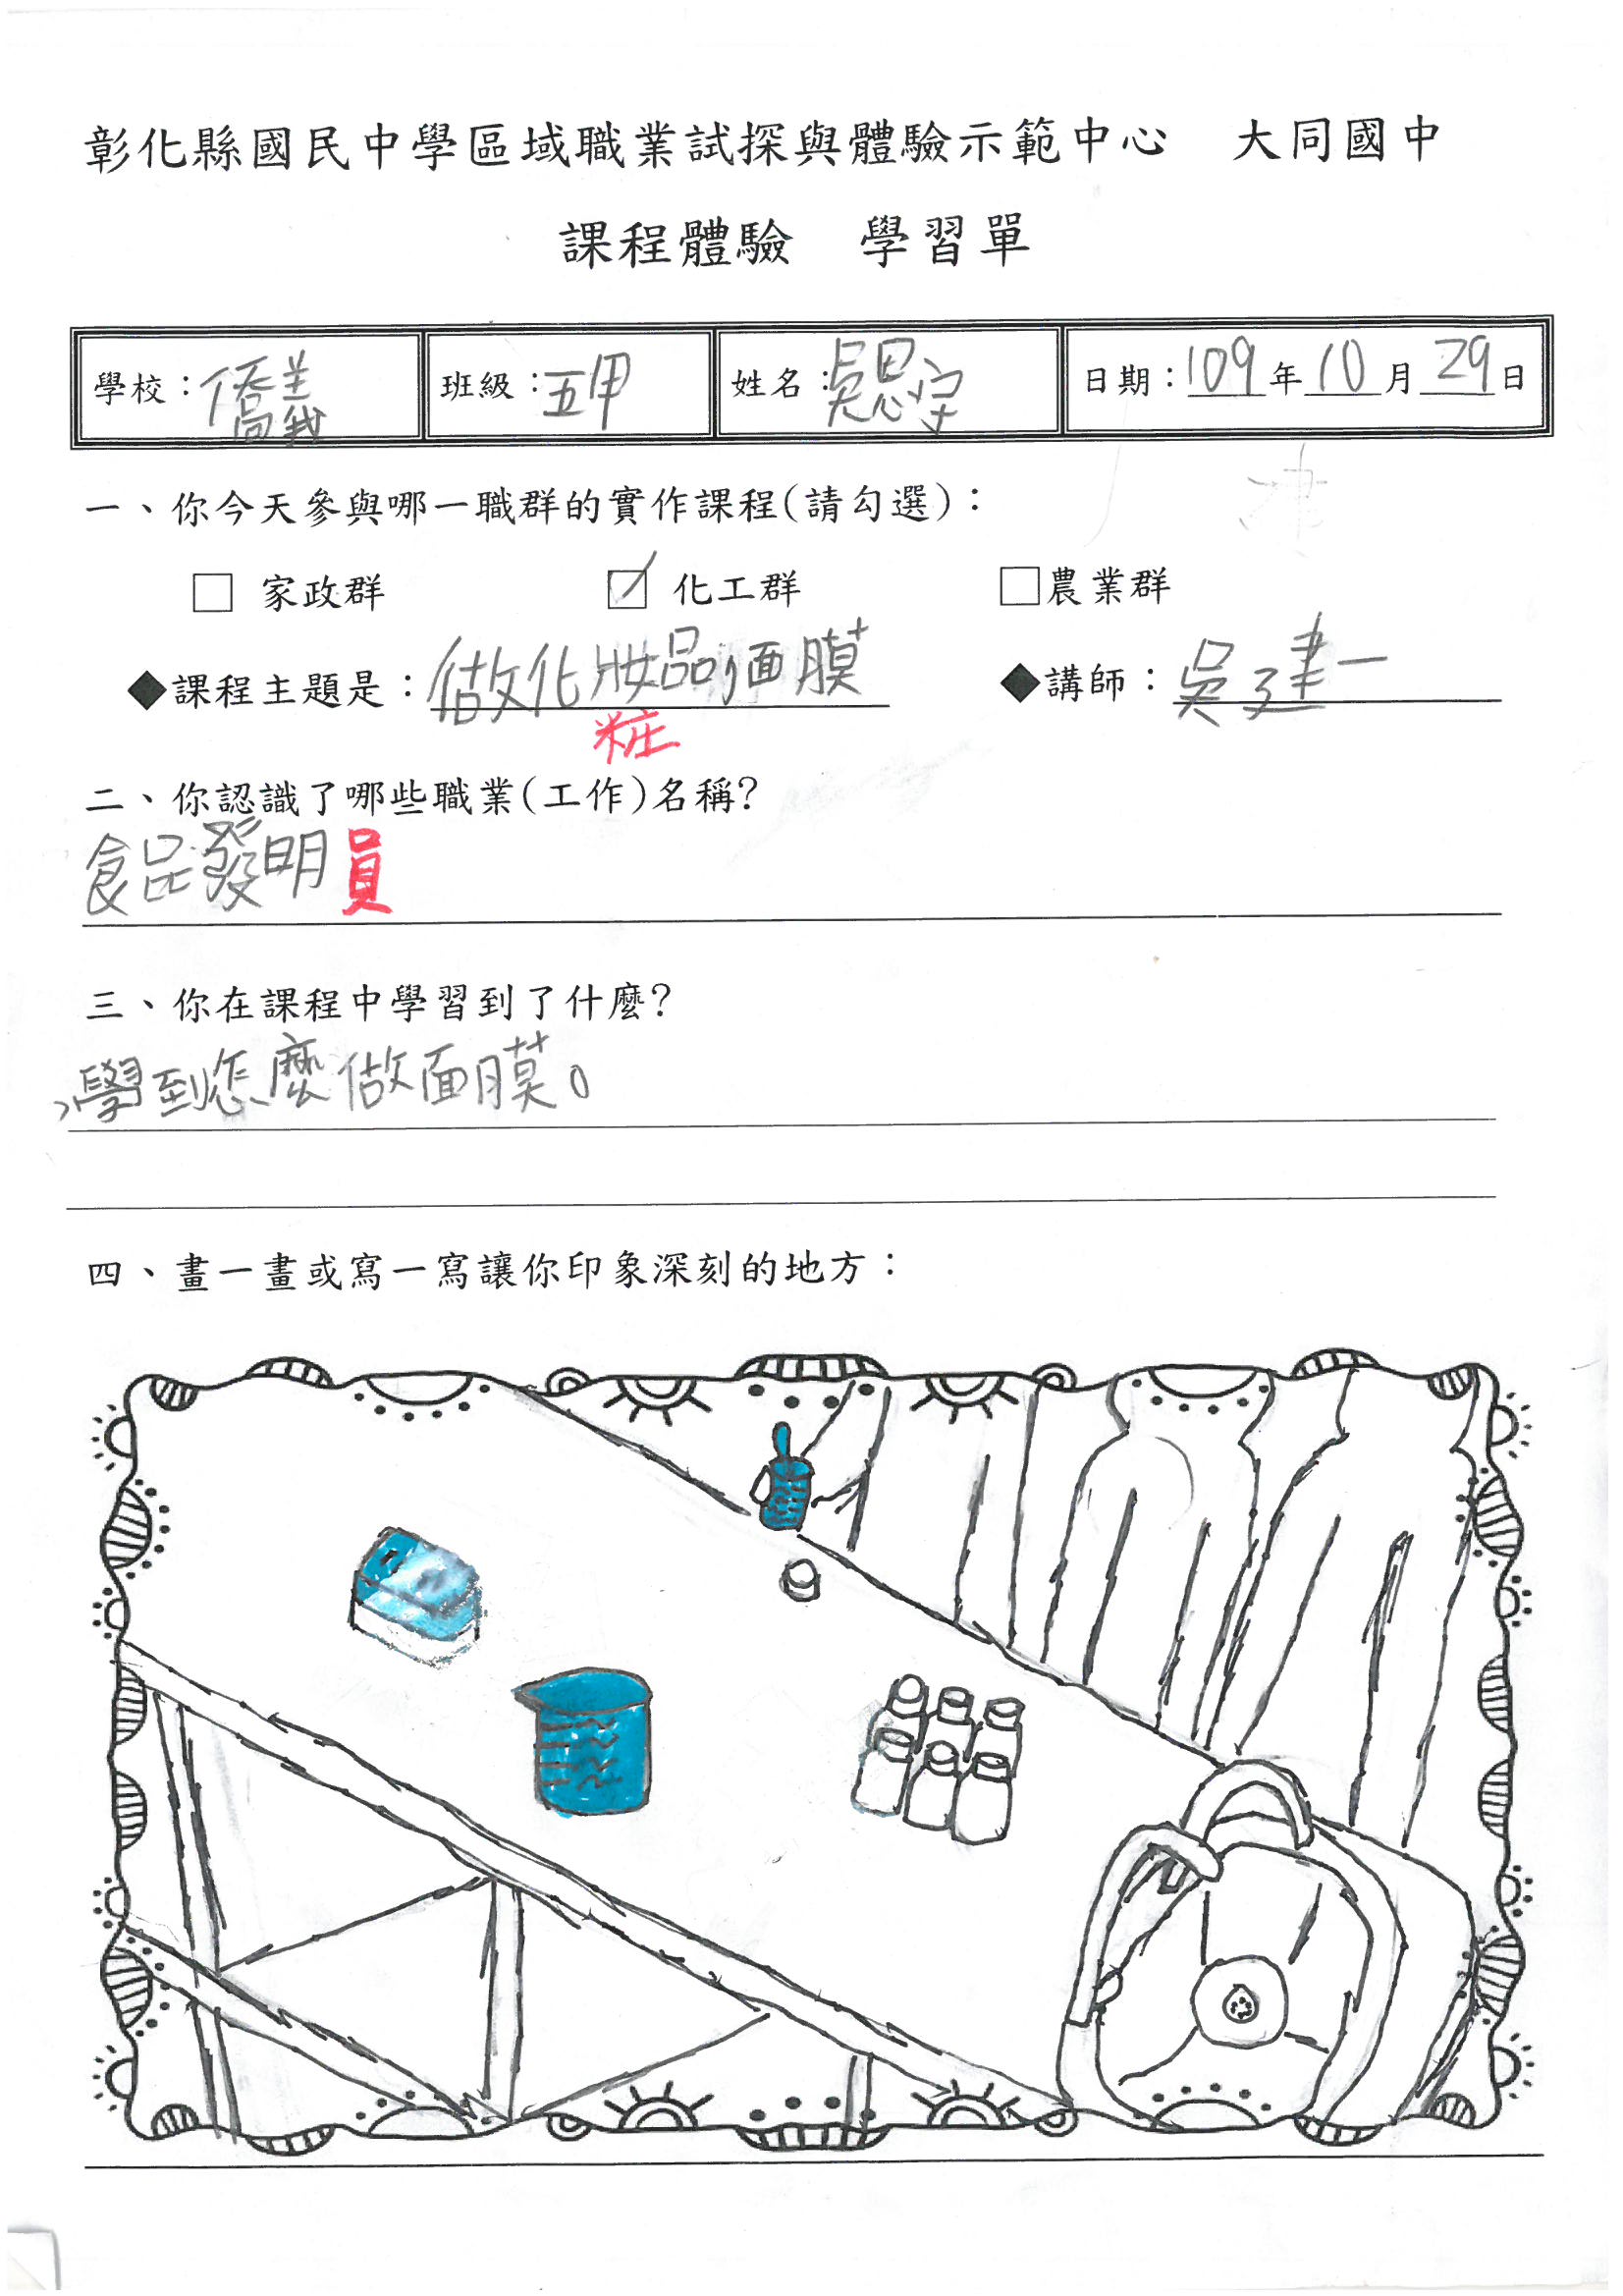 彰化縣國民中學區域職業試探與體驗示範中心 大同國中
課程體驗 學習單
學校：僑義 班級：五甲 姓名：吳恩守 日期：109年10月29日
一、你今天參與哪一職群的實作課程(請勾選)：
□ 家政群 ☑ 化工群 □農業群
◆課程主題是：做化妝品，面膜 ◆講師：吳建一
粧
二、你認識了哪些職業(工作)名稱?
食品發明員
三、你在課程中學習到了什麼?
學到怎麼做面膜。
四、畫一畫或寫一寫讓你印象深刻的地方：